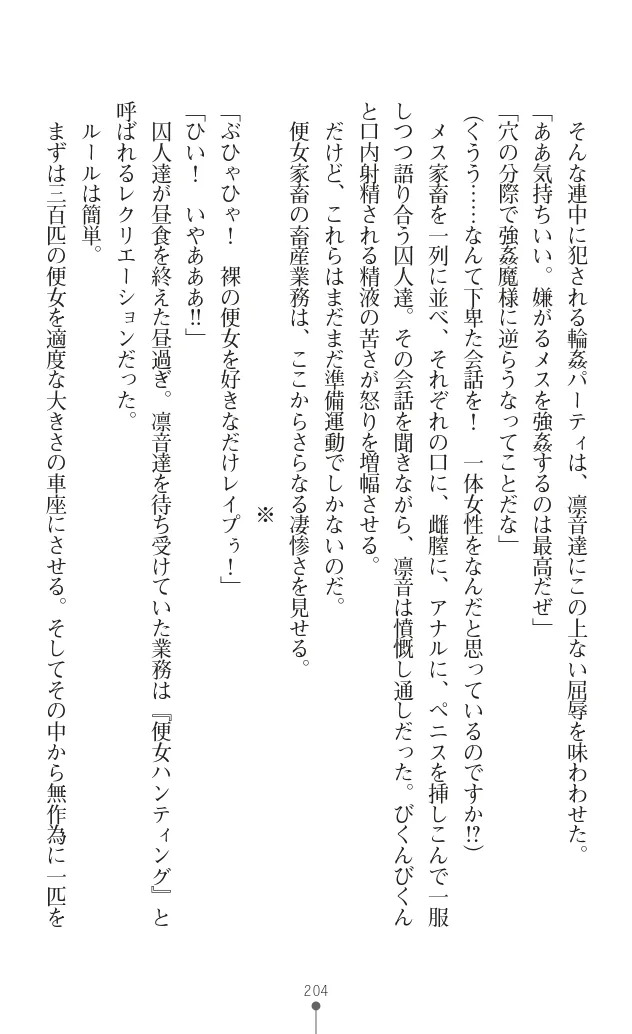 そんな連中に犯される輪姦パーティは、凛音達にこの上ない屈辱を味わわせた。
「ああ気持ちいい。嫌がるメスを強姦するのは最高だぜ」
「穴の分際で強姦魔様に逆らうなってことだな」
(くうう……なんて下卑た会話を！　一体女性をなんだと思っているのですか!?)
メス家畜を一列に並べ、それぞれの口に、雌膣に、アナルに、ペニスを挿しこんで一服
しつつ語り合う囚人達。その会話を聞きながら、凛音は憤慨し通しだった。びくんびくん
と口内射精される精液の苦さが怒りを増幅させる。
だけど、これらはまだまだ準備運動でしかないのだ。
便女家畜の畜産業務は、ここからさらなる凄惨さを見せる。
※
「ぶひゃひゃ！　裸の便女を好きなだけレイプぅ！」
「ひい！　いやあああ!!」
囚人達が昼食を終えた昼過ぎ。凛音達を待ち受けていた業務は『便女ハンティング』と
呼ばれるレクリエーションだった。
ルールは簡単。
まずは三百匹の便女を適度な大きさの車座にさせる。そしてその中から無作為に一匹を
204